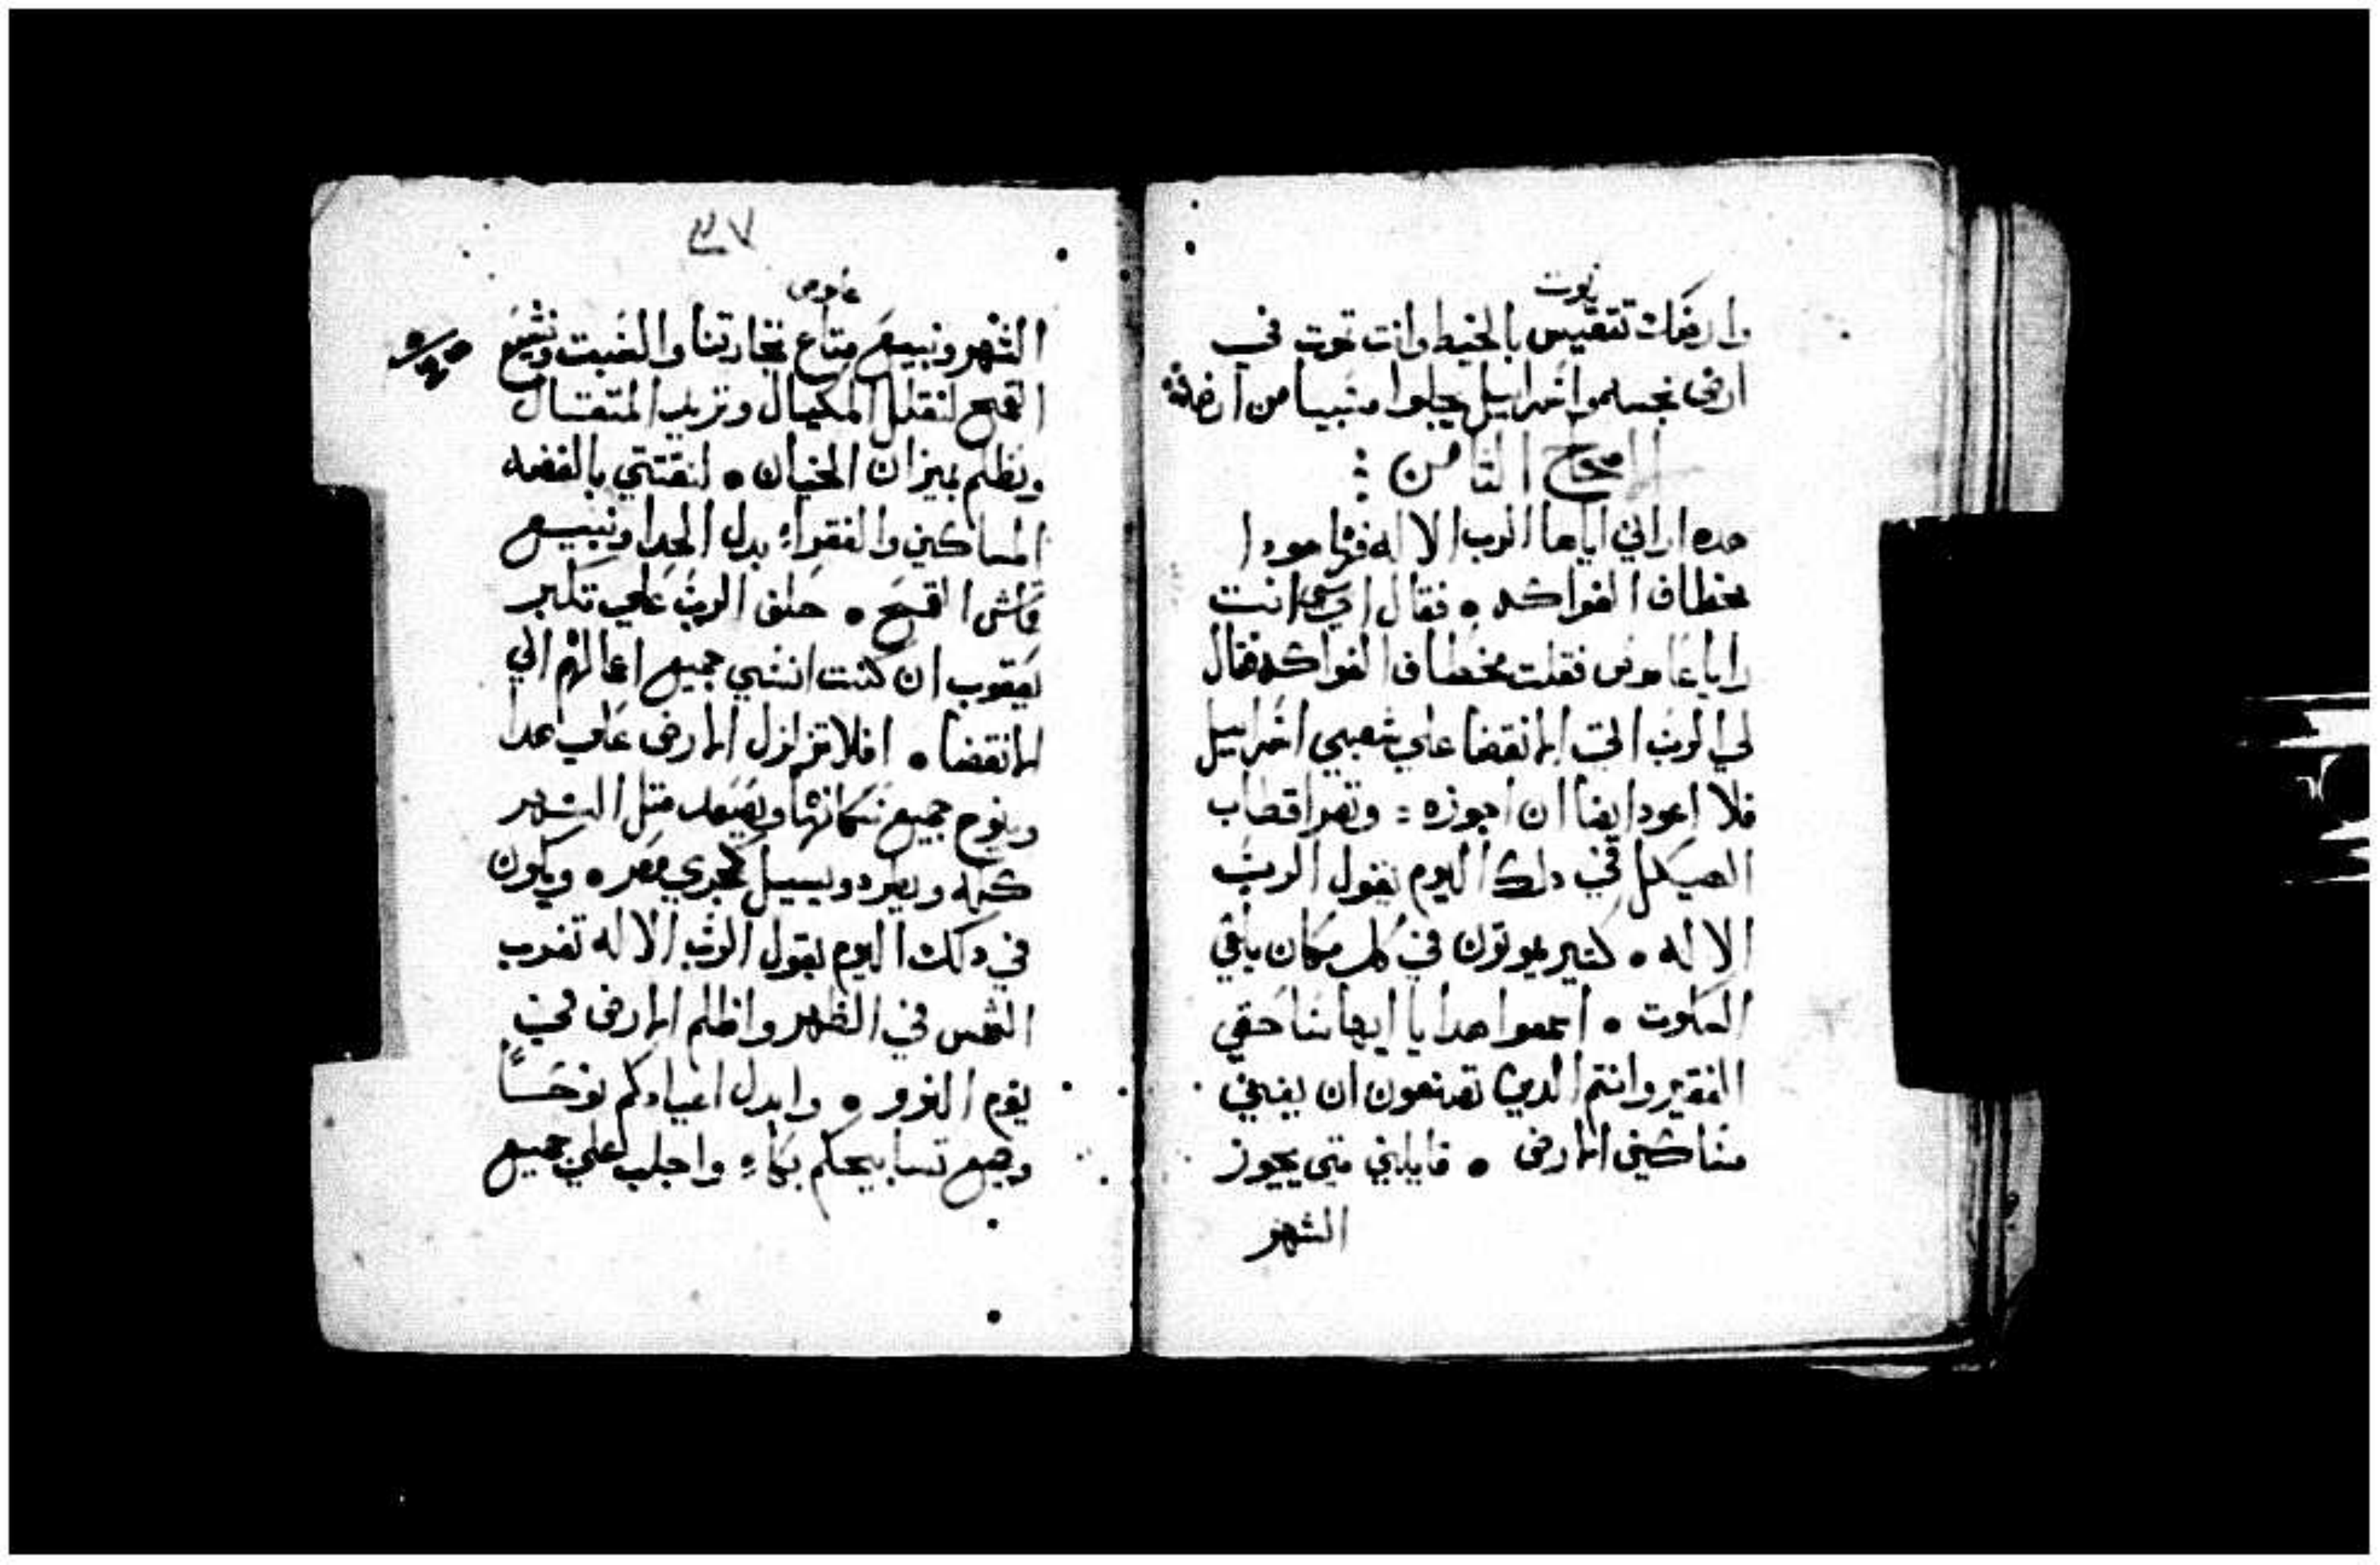 نبوت
وارضك تتقيس بالخيط وانت تموت في
ارض نجسه واسراييل يجلوا منبيا من ارضه
الاصحاح التامن :
هده اراني اياها الرب الاله فها هودا
مخطاف الفواكه • فقال اي شي انت
رايا عاموص فقلت مخطاف الفواكه فقال
لي الرب اتي الانقضا علي شعبي اسراييل
فلا اعود ايضا ان اجوزه : وتصر اقطاب
الهيكل في دلك اليوم يقول الرب
الاله • كتير يموتون في كل مكان يلقي
السكوت • اسمعوا هدا يا ايها ساحقي
الفقير وانتم الدين تصنعون ان يفني
مساكين الارض • قايلين متي يجوز
الشهر
عاموص
الشهر ونبيع متاع تجارتنا والسبت ونشيع
القمح لنقلل المكيال ونزيد المتقال
ونظلم بميزان الخيان • لنقتني بالفضه
المساكين والفقراء بدل الحدا ونبيع
قماش القمح • حلف الرب علي تكبر
يعقوب ان كنت انسي جميع اعمالهم الي
الانقضا • افلا تزلزل الارض علي هدا
وينوح جميع سكانها ويصعد متل النهر
كله ويطرد ويسيل كمجري مصر • ويكون
في دلك اليوم يقول الرب الاله تغرب
الشمس في الظهر واظلم الارض في
يوم النور • وابدل اعيادكم نوحًا
وجميع تسابيحكم بكاء واجلب علي جميع